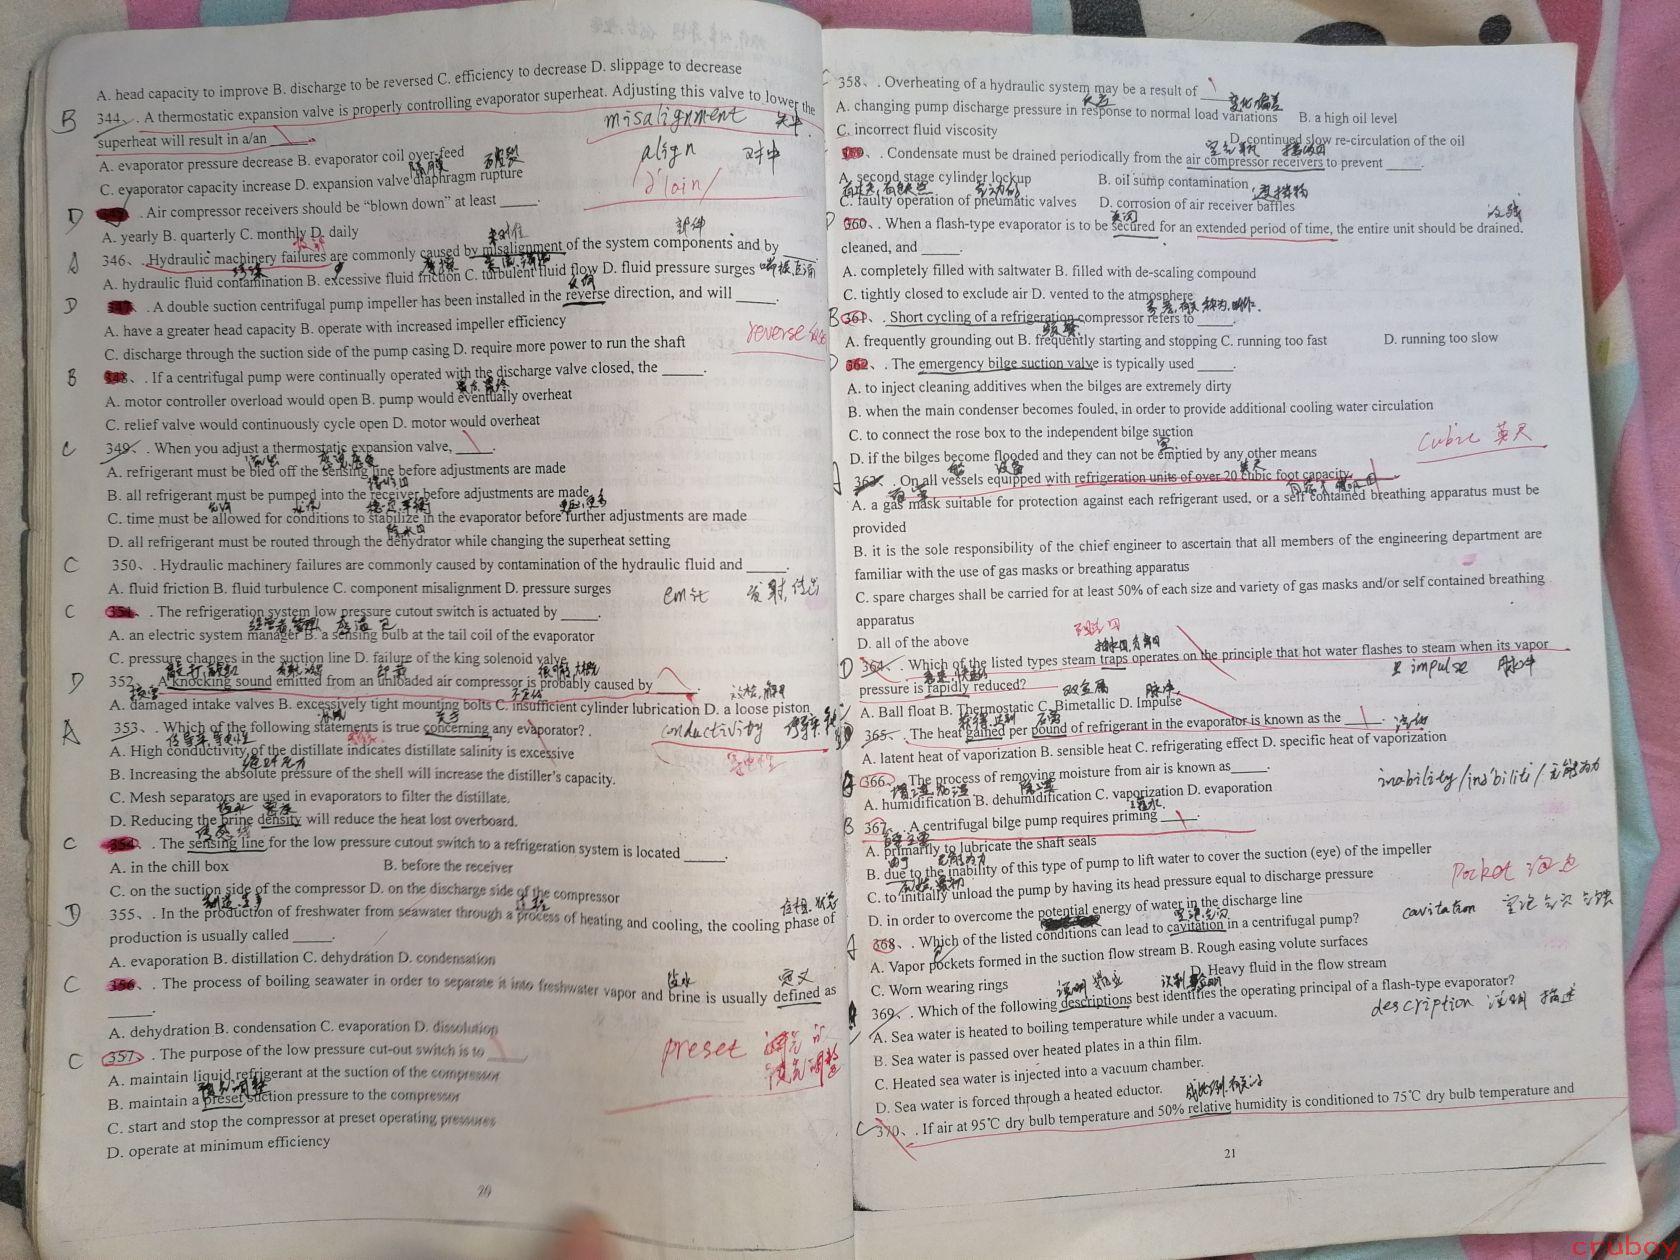 A. head capacity to improve B. discharge to be reversed C. efficiency to decrease D. slippage to decrease
B 344、. A thermostatic expansion valve is properly controlling evaporator superheat. Adjusting this valve to lower the
superheat will result in a/an _____.
misalignment
A. evaporator pressure decrease B. evaporator coil over-feed
align 对中
C. evaporator capacity increase D. expansion valve diaphragm rupture
/ə'lain/
D . Air compressor receivers should be “blown down” at least _____.
A. yearly B. quarterly C. monthly D. daily
A 346、. Hydraulic machinery failures are commonly caused by misalignment of the system components and by _____
A. hydraulic fluid contamination B. excessive fluid friction C. turbulent fluid flow D. fluid pressure surges
D 347、. A double suction centrifugal pump impeller has been installed in the reverse direction, and will _____.
A. have a greater head capacity B. operate with increased impeller efficiency
reverse
C. discharge through the suction side of the pump casing D. require more power to run the shaft
B 348、. If a centrifugal pump were continually operated with the discharge valve closed, the _____.
A. motor controller overload would open B. pump would eventually overheat
C. relief valve would continuously cycle open D. motor would overheat
C 349、. When you adjust a thermostatic expansion valve, _____.
A. refrigerant must be bled off the sensing line before adjustments are made
B. all refrigerant must be pumped into the receiver before adjustments are made
C. time must be allowed for conditions to stabilize in the evaporator before further adjustments are made
D. all refrigerant must be routed through the dehydrator while changing the superheat setting
C 350、. Hydraulic machinery failures are commonly caused by contamination of the hydraulic fluid and _____.
A. fluid friction B. fluid turbulence C. component misalignment D. pressure surges
emit 发射,
C 351、. The refrigeration system low pressure cutout switch is actuated by _____.
A. an electric system manager B. a sensing bulb at the tail coil of the evaporator
C. pressure changes in the suction line D. failure of the king solenoid valve
D 352、. A knocking sound emitted from an unloaded air compressor is probably caused by _____.
A. damaged intake valves B. excessively tight mounting bolts C. insufficient cylinder lubrication D. a loose piston
A 353、. Which of the following statements is true concerning any evaporator? .
conductivity
A. High conductivity of the distillate indicates distillate salinity is excessive
导电性
B. Increasing the absolute pressure of the shell will increase the distiller’s capacity.
C. Mesh separators are used in evaporators to filter the distillate.
D. Reducing the brine density will reduce the heat lost overboard.
C 354、. The sensing line for the low pressure cutout switch to a refrigeration system is located _____.
A. in the chill box B. before the receiver
C. on the suction side of the compressor D. on the discharge side of the compressor
D 355、. In the production of freshwater from seawater through a process of heating and cooling, the cooling phase of
production is usually called _____.
A. evaporation B. distillation C. dehydration D. condensation
C 356、. The process of boiling seawater in order to separate it into freshwater vapor and brine is usually defined as
_____.
A. dehydration B. condensation C. evaporation D. dissolution
C 357、. The purpose of the low pressure cut-out switch is to _____.
preset
A. maintain liquid refrigerant at the suction of the compressor
B. maintain a preset suction pressure to the compressor
C. start and stop the compressor at preset operating pressures
D. operate at minimum efficiency
20
C 358、. Overheating of a hydraulic system may be a result of _____
A. changing pump discharge pressure in response to normal load variations B. a high oil level
C. incorrect fluid viscosity D. continued slow re-circulation of the oil
. Condensate must be drained periodically from the air compressor receivers to prevent _____.
A. second stage cylinder lockup B. oil sump contamination
C. faulty operation of pneumatic valves D. corrosion of air receiver baffles
D 360、. When a flash-type evaporator is to be secured for an extended period of time, the entire unit should be drained.
cleaned, and _____.
A. completely filled with saltwater B. filled with de-scaling compound
C. tightly closed to exclude air D. vented to the atmosphere
B 361、. Short cycling of a refrigeration compressor refers to _____.
A. frequently grounding out B. frequently starting and stopping C. running too fast D. running too slow
D 362、. The emergency bilge suction valve is typically used _____.
A. to inject cleaning additives when the bilges are extremely dirty
B. when the main condenser becomes fouled, in order to provide additional cooling water circulation
C. to connect the rose box to the independent bilge suction
cubic 英尺
D. if the bilges become flooded and they can not be emptied by any other means
A 363、. On all vessels equipped with refrigeration units of over 20 cubic foot capacity, _____.
A. a gas mask suitable for protection against each refrigerant used, or a self contained breathing apparatus must be
provided
B. it is the sole responsibility of the chief engineer to ascertain that all members of the engineering department are
familiar with the use of gas masks or breathing apparatus
C. spare charges shall be carried for at least 50% of each size and variety of gas masks and/or self contained breathing
apparatus
D. all of the above
D 364、. Which of the listed types steam traps operates on the principle that hot water flashes to steam when its vapor
pressure is rapidly reduced?
impulse 脉冲
A. Ball float B. Thermostatic C. Bimetallic D. Impulse
365、. The heat gained per pound of refrigerant in the evaporator is known as the _____.
A. latent heat of vaporization B. sensible heat C. refrigerating effect D. specific heat of vaporization
366、. The process of removing moisture from air is known as_____.
inability 无能为力
A. humidification B. dehumidification C. vaporization D. evaporation
B 367、. A centrifugal bilge pump requires priming _____.
A. primarily to lubricate the shaft seals
B. due to the inability of this type of pump to lift water to cover the suction (eye) of the impeller
Pocket
C. to initially unload the pump by having its head pressure equal to discharge pressure
D. in order to overcome the potential energy of water in the discharge line
cavitation
A 368、. Which of the listed conditions can lead to cavitation in a centrifugal pump?
A. Vapor pockets formed in the suction flow stream B. Rough easing volute surfaces
C. Worn wearing rings D. Heavy fluid in the flow stream
369、. Which of the following descriptions best identifies the operating principal of a flash-type evaporator?
description 说明 描述
A. Sea water is heated to boiling temperature while under a vacuum.
B. Sea water is passed over heated plates in a thin film.
C. Heated sea water is injected into a vacuum chamber.
D. Sea water is forced through a heated eductor.
C 370、. If air at 95℃ dry bulb temperature and 50% relative humidity is conditioned to 75℃ dry bulb temperature and
21
cruboy